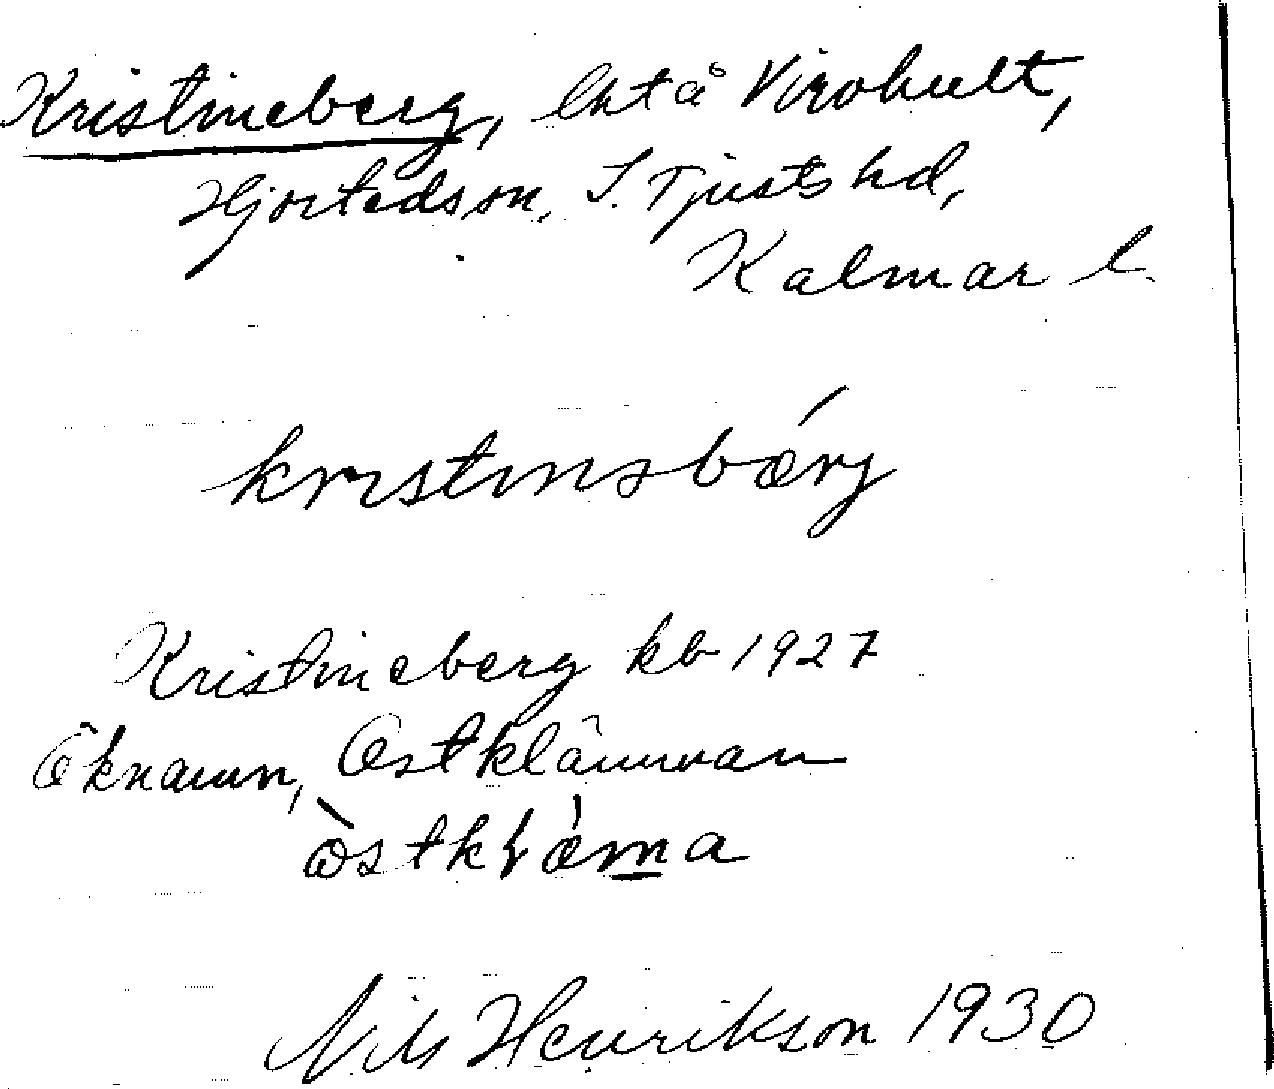 Kristineberg, lht å Virohult,
Hjorteds sn, S. Tjusts hd,
Kalmar l.
kristinsbærj
Kristineberg kb 1927
Öknamn, Ostklämman
òstkɫæma
Nils Henrikson 1930